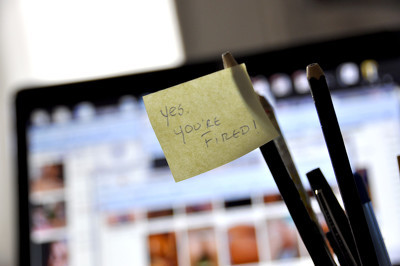 Yes,
You're
Fired!